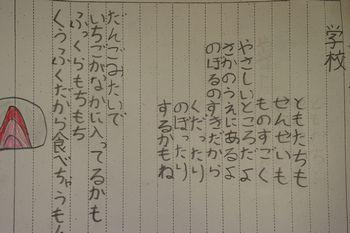 学校
ともたちも
せんせいも
ものすごく
やさしいところだよ
さかのうえにあるよ
のぼるのすきだから
くだったり
のぼったり
するかもね
だんごみたいで
いちごがなかに入ってるかも
ふっくらもちもち
くうふくだから食べちゃうもん